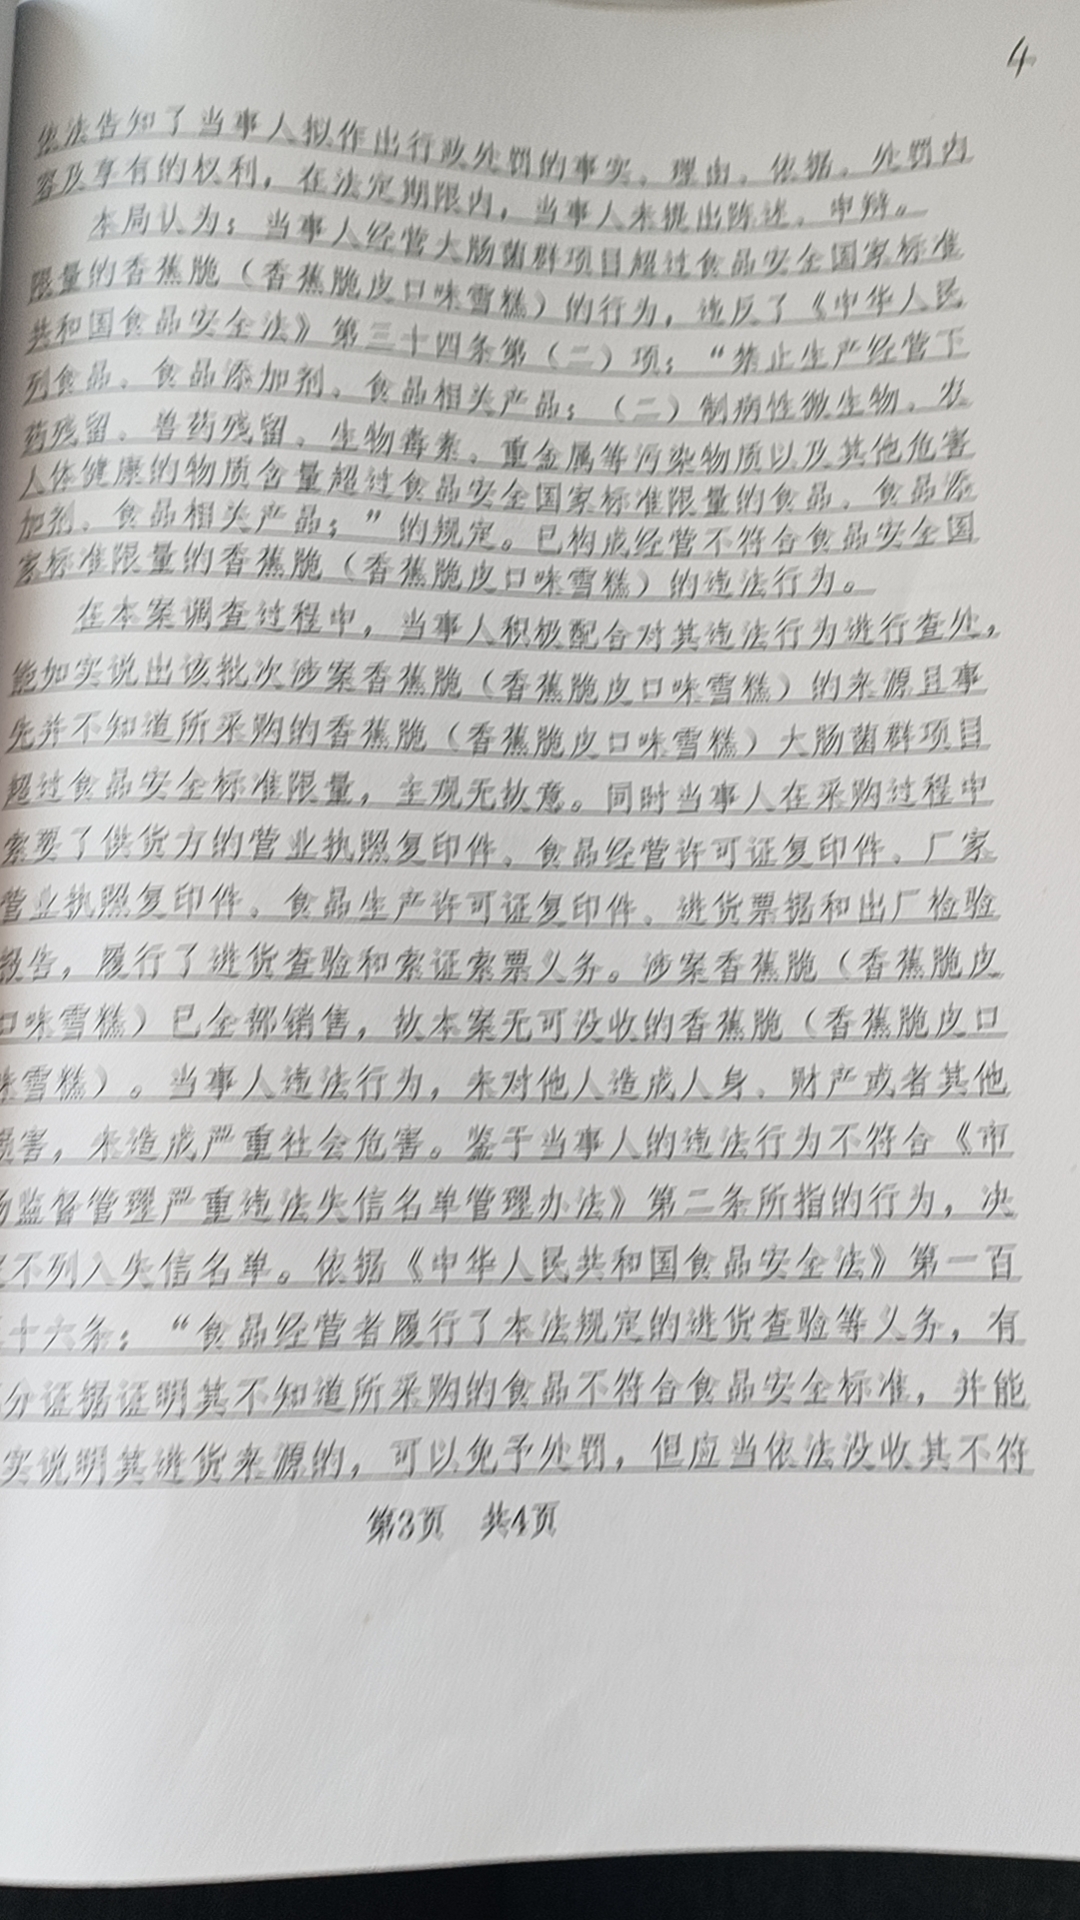 4
依法告知了当事人拟作出行政处罚的事实、理由、依据、处罚内
容及享有的权利，在法定期限内，当事人未提出陈述、申辩。
本局认为：当事人经营大肠菌群项目超过食品安全国家标准
限量的香蕉脆（香蕉脆皮口味雪糕）的行为，违反了《中华人民
共和国食品安全法》第三十四条第（二）项：“禁止生产经营下
列食品、食品添加剂、食品相关产品：（二）制病性微生物、农
药残留、兽药残留、生物毒素、重金属等污染物质以及其他危害
人体健康的物质含量超过食品安全国家标准限量的食品、食品添
加剂、食品相关产品；”的规定。已构成经营不符合食品安全国
家标准限量的香蕉脆（香蕉脆皮口味雪糕）的违法行为。
在本案调查过程中，当事人积极配合对其违法行为进行查处，
能如实说出该批次涉案香蕉脆（香蕉脆皮口味雪糕）的来源且事
先并不知道所采购的香蕉脆（香蕉脆皮口味雪糕）大肠菌群项目
超过食品安全标准限量，主观无故意。同时当事人在采购过程中
索要了供货方的营业执照复印件、食品经营许可证复印件、厂家
营业执照复印件、食品生产许可证复印件、进货票据和出厂检验
报告，履行了进货查验和索证索票义务。涉案香蕉脆（香蕉脆皮
口味雪糕）已全部销售，故本案无可没收的香蕉脆（香蕉脆皮口
味雪糕）。当事人违法行为，未对他人造成人身、财产或者其他
损害，未造成严重社会危害。鉴于当事人的违法行为不符合《市
场监督管理严重违法失信名单管理办法》第二条所指的行为，决
定不列入失信名单。依据《中华人民共和国食品安全法》第一百
三十六条：“食品经营者履行了本法规定的进货查验等义务，有
分证据证明其不知道所采购的食品不符合食品安全标准，并能
实说明其进货来源的，可以免予处罚，但应当依法没收其不符
第3页 共4页